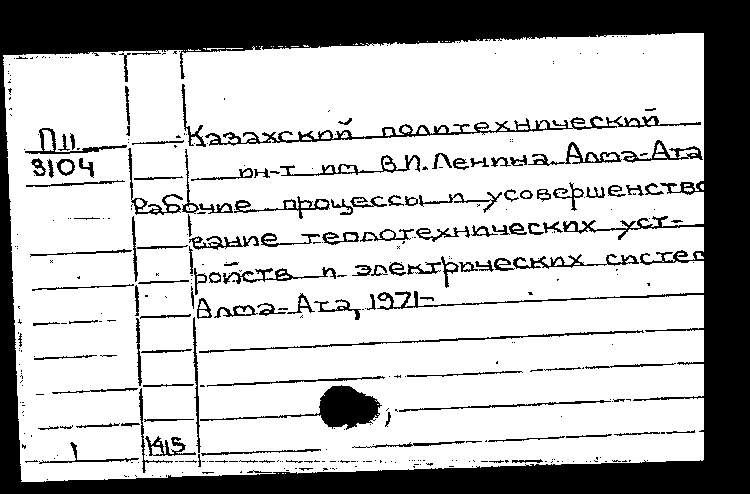 П11
3104
Казахский политехнический
ин-т им. В.И.Ленина. Алма-Ата
Рабочие процессы и усовершенство
вание теплотехнических уст-
ройств и электрических систем
Алма-Ата, 1971-
1 1415